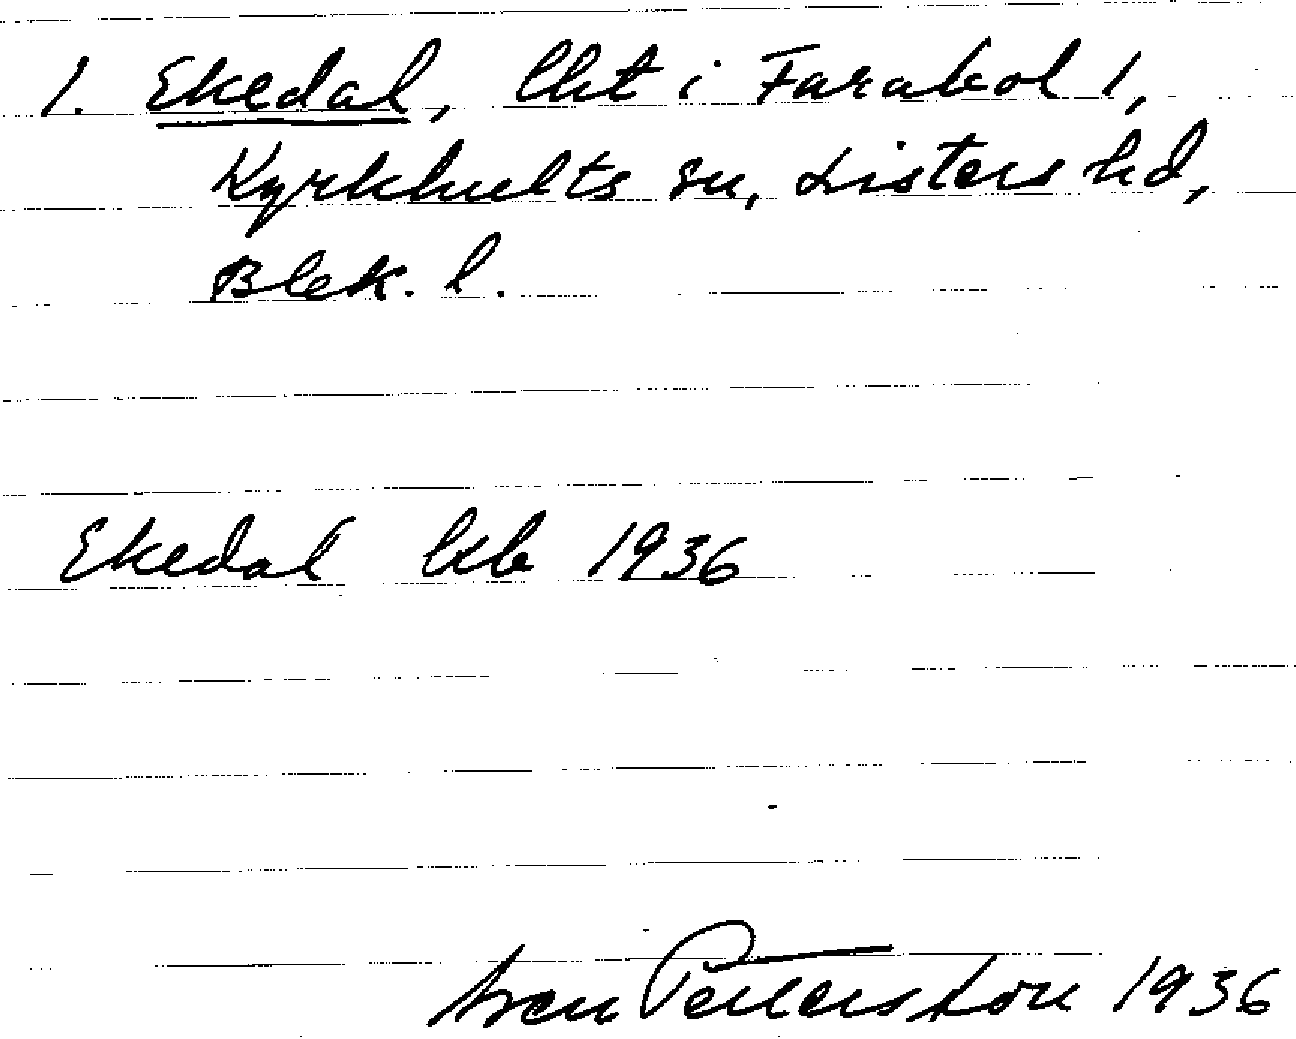 1. Ekedal, lht i Farabol 1,
Kyrkhults sn, Listers hd,
Blek. l.
Ekedal lkb 1936
Sven Petersson 1936